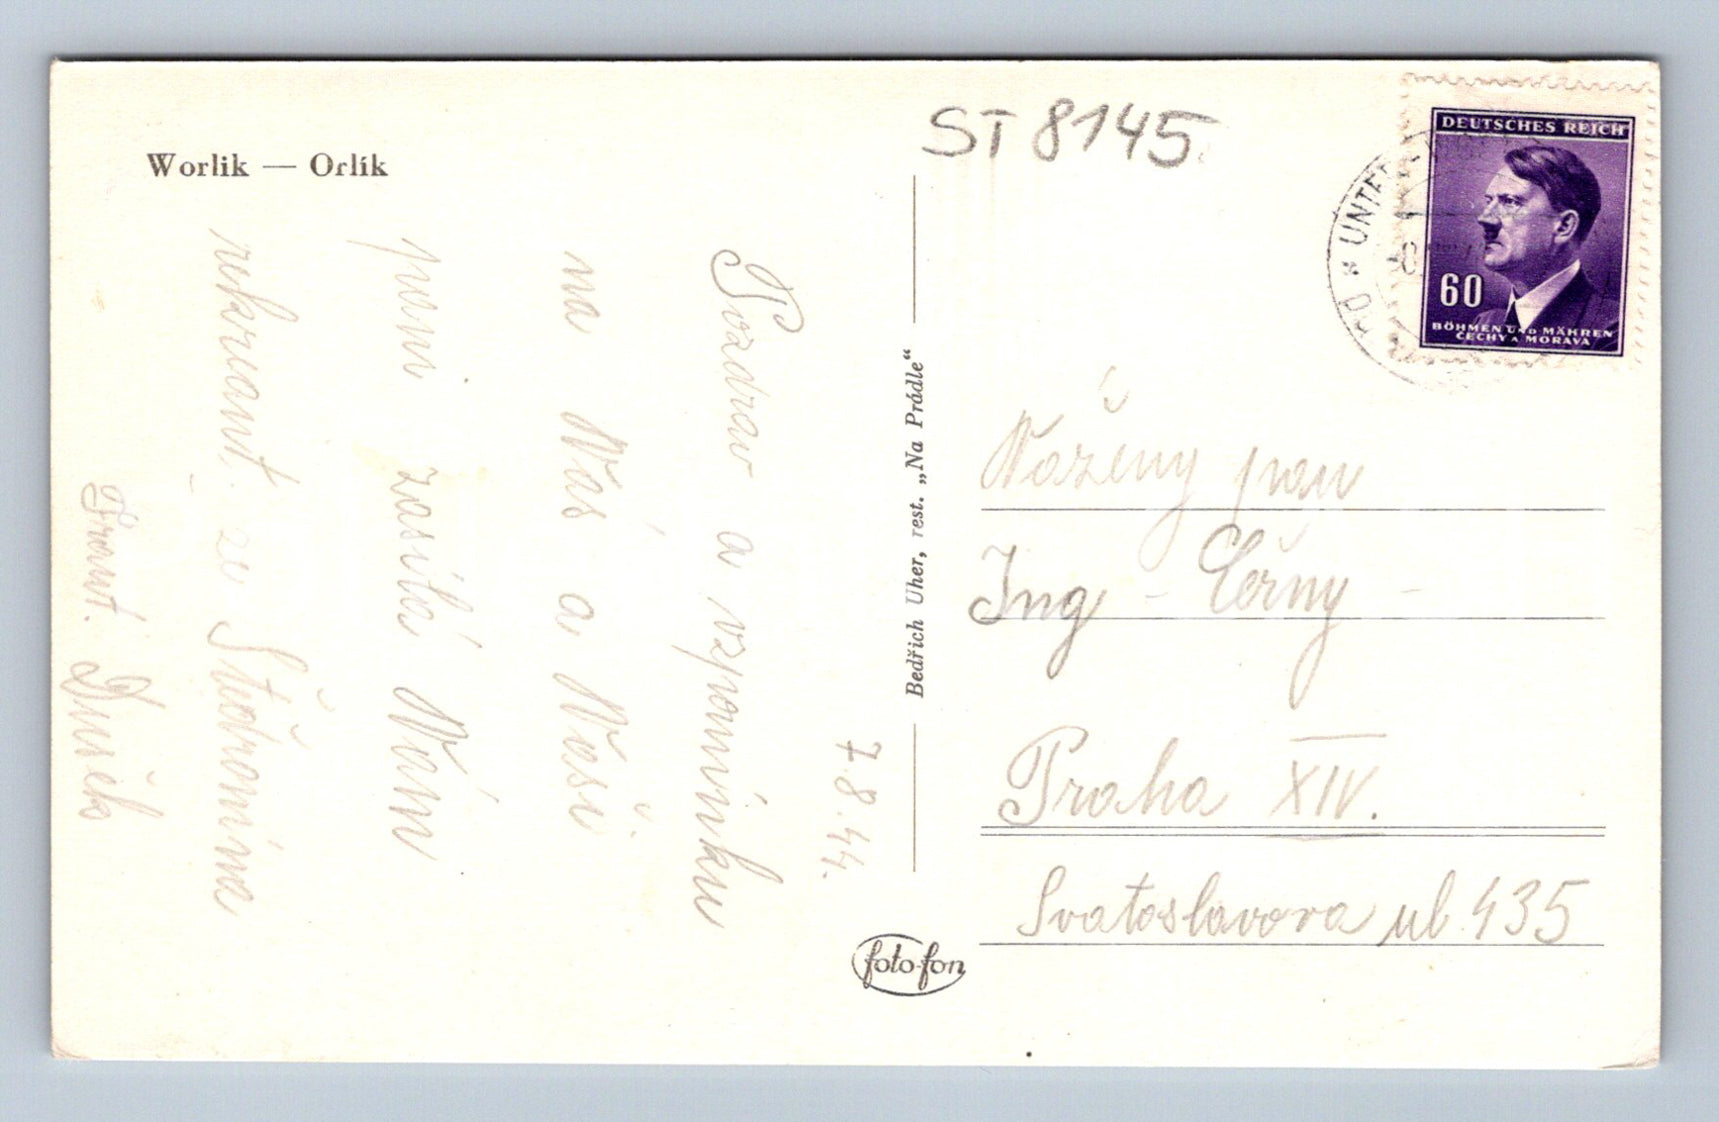 Worlik — Orlík
ST 8145
7.8.44.
Pozdrav a vzpomínku
na Vás a Vaši
paní zasílá Vám
rekreant ze Štědronína
Frant. Dušek
Bedřich Uher, rest. „Na Prádle“
foto-fon
DEUTSCHES REICH
60
BÖHMEN UND MÄHREN
ČECHY A MORAVA
UNTER
Vážený pan
Ing - Černý -
Praha XIV.
Svatoslavova ul. 435